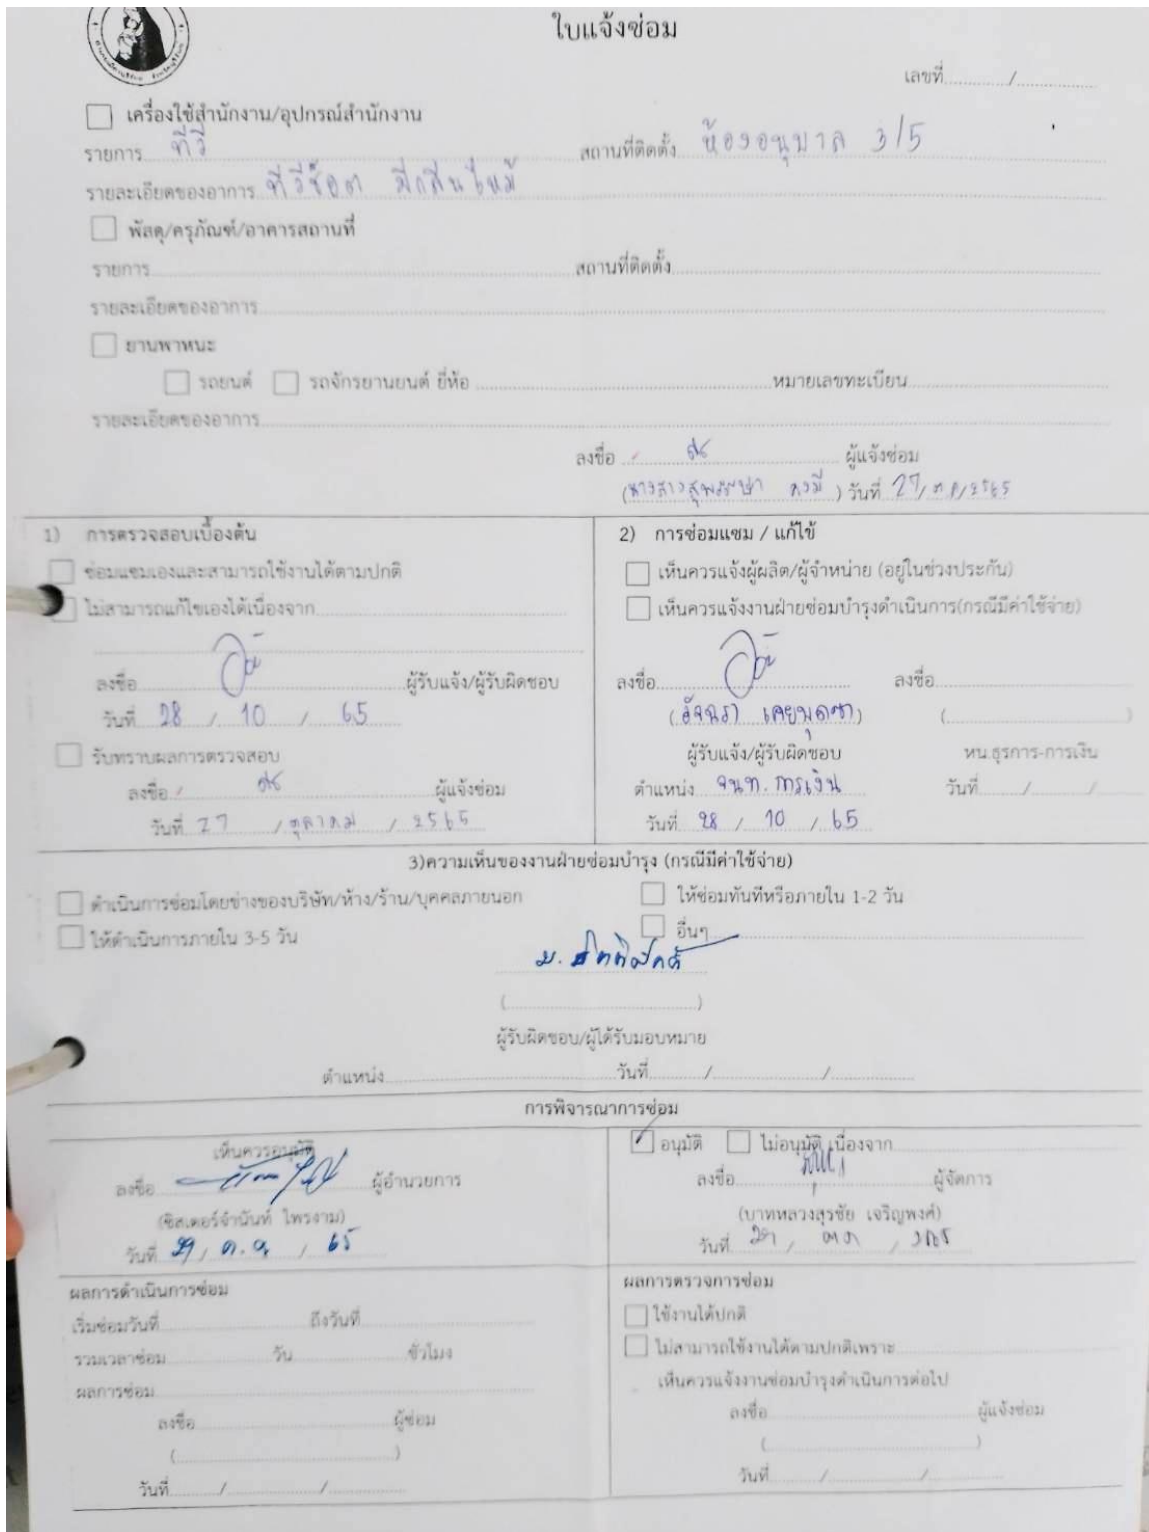 ใบแจ้งซ่อม
เลขที่............/........................
เครื่องใช้สำนักงาน/อุปกรณ์สำนักงาน
รายการ ทีวี สถานที่ติดตั้ง ห้องอนุบาล 3/5
รายละเอียดของอาการ ทีวีช็อต มีกลิ่นไหม้
พัสดุ/ครุภัณฑ์/อาคารสถานที่
รายการ สถานที่ติดตั้ง
รายละเอียดของอาการ
ยานพาหนะ
รถยนต์ รถจักรยานยนต์ ยี่ห้อ หมายเลขทะเบียน
รายละเอียดของอาการ
ลงชื่อ ผู้แจ้งซ่อม
(นางสาว ) วันที่ 27/ต.ค/2565
1) การตรวจสอบเบื้องต้น
ซ่อมแซมเองและสามารถใช้งานได้ตามปกติ
ไม่สามารถแก้ไขเองได้เนื่องจาก
ลงชื่อ ผู้รับแจ้ง/ผู้รับผิดชอบ
วันที่ 28 / 10 / 65
รับทราบผลการตรวจสอบ
ลงชื่อ ผู้แจ้งซ่อม
วันที่ 27 / ตุลาคม / 2565
2) การซ่อมแซม / แก้ไข้
เห็นควรแจ้งผู้ผลิต/ผู้จำหน่าย (อยู่ในช่วงประกัน)
เห็นควรแจ้งงานฝ่ายซ่อมบำรุงดำเนินการ(กรณีมีค่าใช้จ่าย)
ลงชื่อ ลงชื่อ
(อัจฉรา เคยพุดซา) ( )
ผู้รับแจ้ง/ผู้รับผิดชอบ หน.ธุรการ-การเงิน
ตำแหน่ง จนท.การเงิน วันที่ / /
วันที่ 28 / 10 / 65
3)ความเห็นของงานฝ่ายซ่อมบำรุง (กรณีมีค่าใช้จ่าย)
ดำเนินการซ่อมโดยช่างของบริษัท/ห้าง/ร้าน/บุคคลภายนอก ให้ซ่อมทันทีหรือภายใน 1-2 วัน
ให้ดำเนินการภายใน 3-5 วัน อื่นๆ
( )
ผู้รับผิดชอบ/ผู้ได้รับมอบหมาย
ตำแหน่ง วันที่ / /
การพิจารณาการซ่อม
เห็นควรอนุมัติ
ลงชื่อ ผู้อำนวยการ
(ซิสเตอร์จำนันท์ ไพรงาม)
วันที่ 29 / ต.ค. / 65
อนุมัติ ไม่อนุมัติ เนื่องจาก
ลงชื่อ ผู้จัดการ
(บาทหลวงสุรชัย เจริญพงศ์)
วันที่ / /
ผลการดำเนินการซ่อม
เริ่มซ่อมวันที่ ถึงวันที่
รวมเวลาซ่อม วัน ชั่วโมง
ผลการซ่อม
ลงชื่อ ผู้ซ่อม
( )
วันที่ / /
ผลการตรวจการซ่อม
ใช้งานได้ปกติ
ไม่สามารถใช้งานได้ตามปกติเพราะ
เห็นควรแจ้งงานซ่อมบำรุงดำเนินการต่อไป
ลงชื่อ ผู้แจ้งซ่อม
( )
วันที่ / /